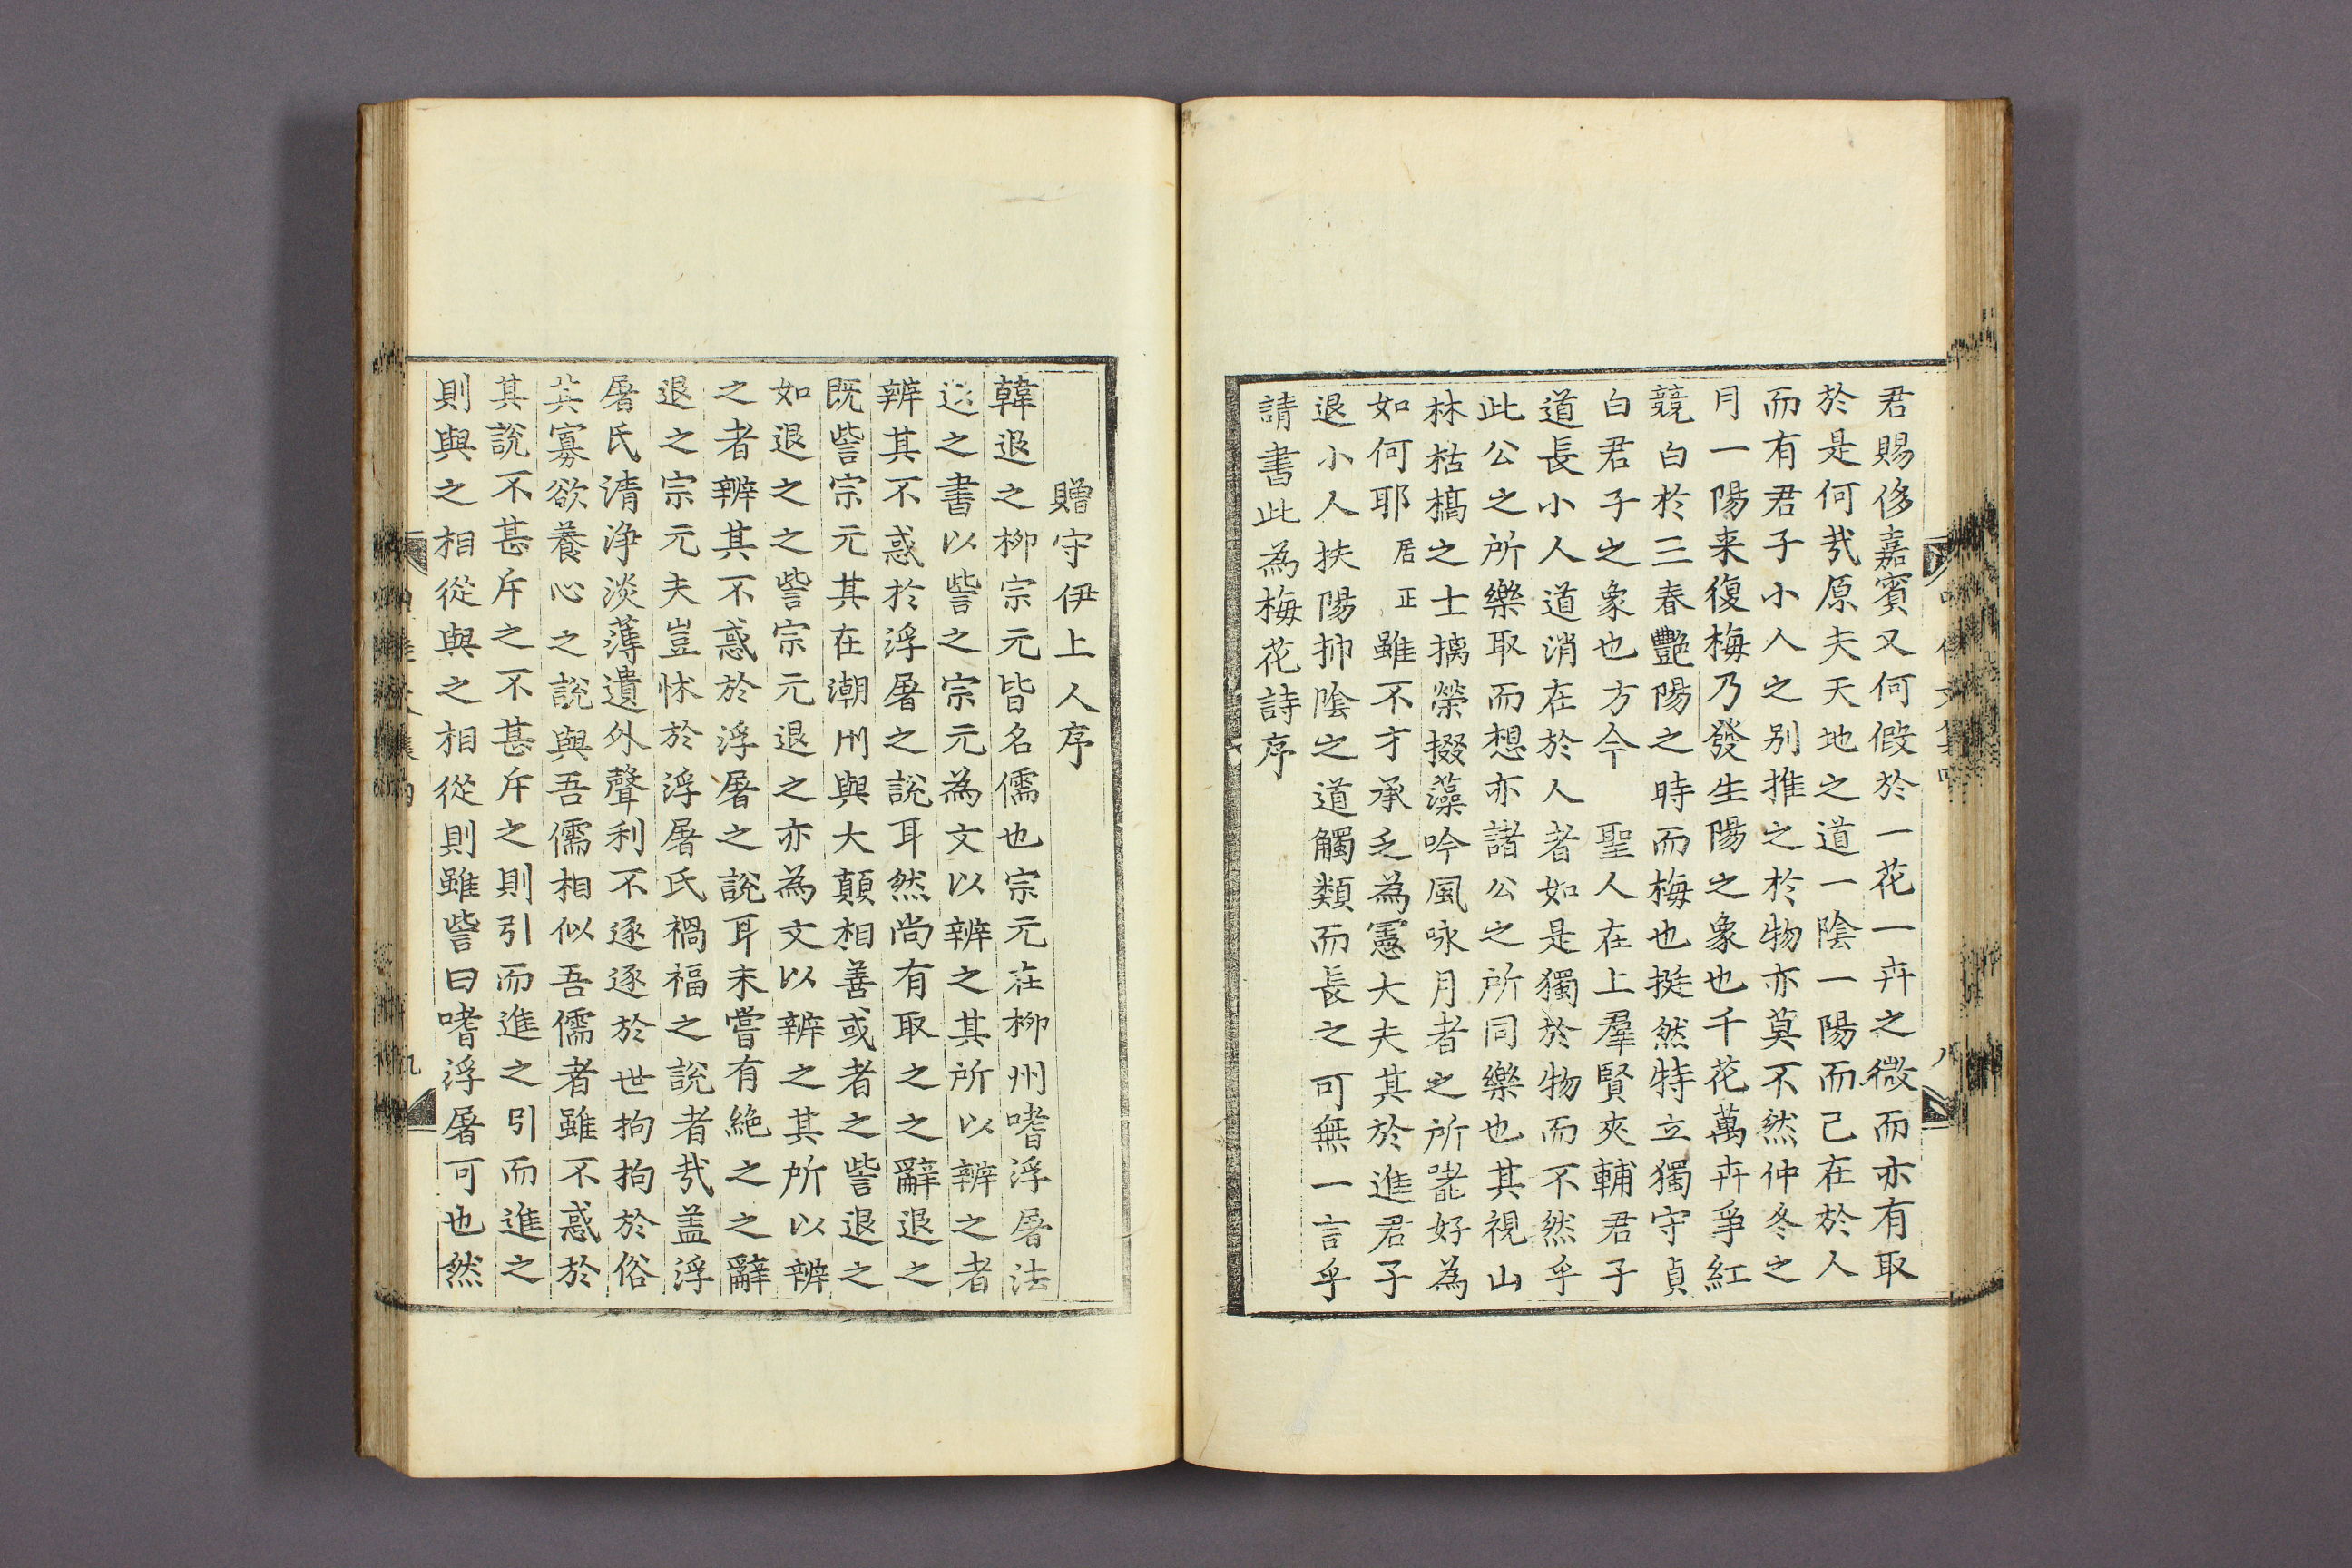 君賜侈嘉賓又何假於一花一卉之微而亦有取
於是何㢤原夫天地之道一陰一陽而已在於人
而有君子小人之别推之於物亦莫不然仲冬之
月一陽来復梅乃發生陽之象也千花萬卉爭紅
競白於三春艷陽之時而梅也挺然特立獨守貞
白君子之象也方今 聖人在上羣賢夾輔君子
道長小人道消在於人者如是獨於物而不然乎
此公之所樂取而想亦諸公之所同樂也其視山
林枯槁之士摛榮掇藻吟風咏月者之所嗜好為
如何耶居正雖不才承乏為憲大夫其於進君子
退小人扶陽抑陰之道觸類而長之可無一言乎
請書此為梅花詩序
贈守伊上人序
韓退之柳宗元皆名儒也宗元在柳州嗜浮屠法
退之書以訾之宗元為文以辨之其所以辨之者
辨其不惑於浮屠之說耳然尚有取之之辭退之
既訾宗元其在潮州與大顛相善或者之訾退之
如退之之訾宗元退之亦為文以辨之其所以辨
之者辨其不惑於浮屠之說耳未嘗有絶之之辭
退之宗元夫豈怵於浮屠氏禍福之說者㢤盖浮
屠氏清浄淡薄遺外聲利不逐逐於世拘拘於俗
其寡欲養心之說與吾儒相似吾儒者雖不惑於
其說不甚斥之不甚斥之則引而進之引而進之
則與之相從與之相從則雖訾曰嗜浮屠可也然